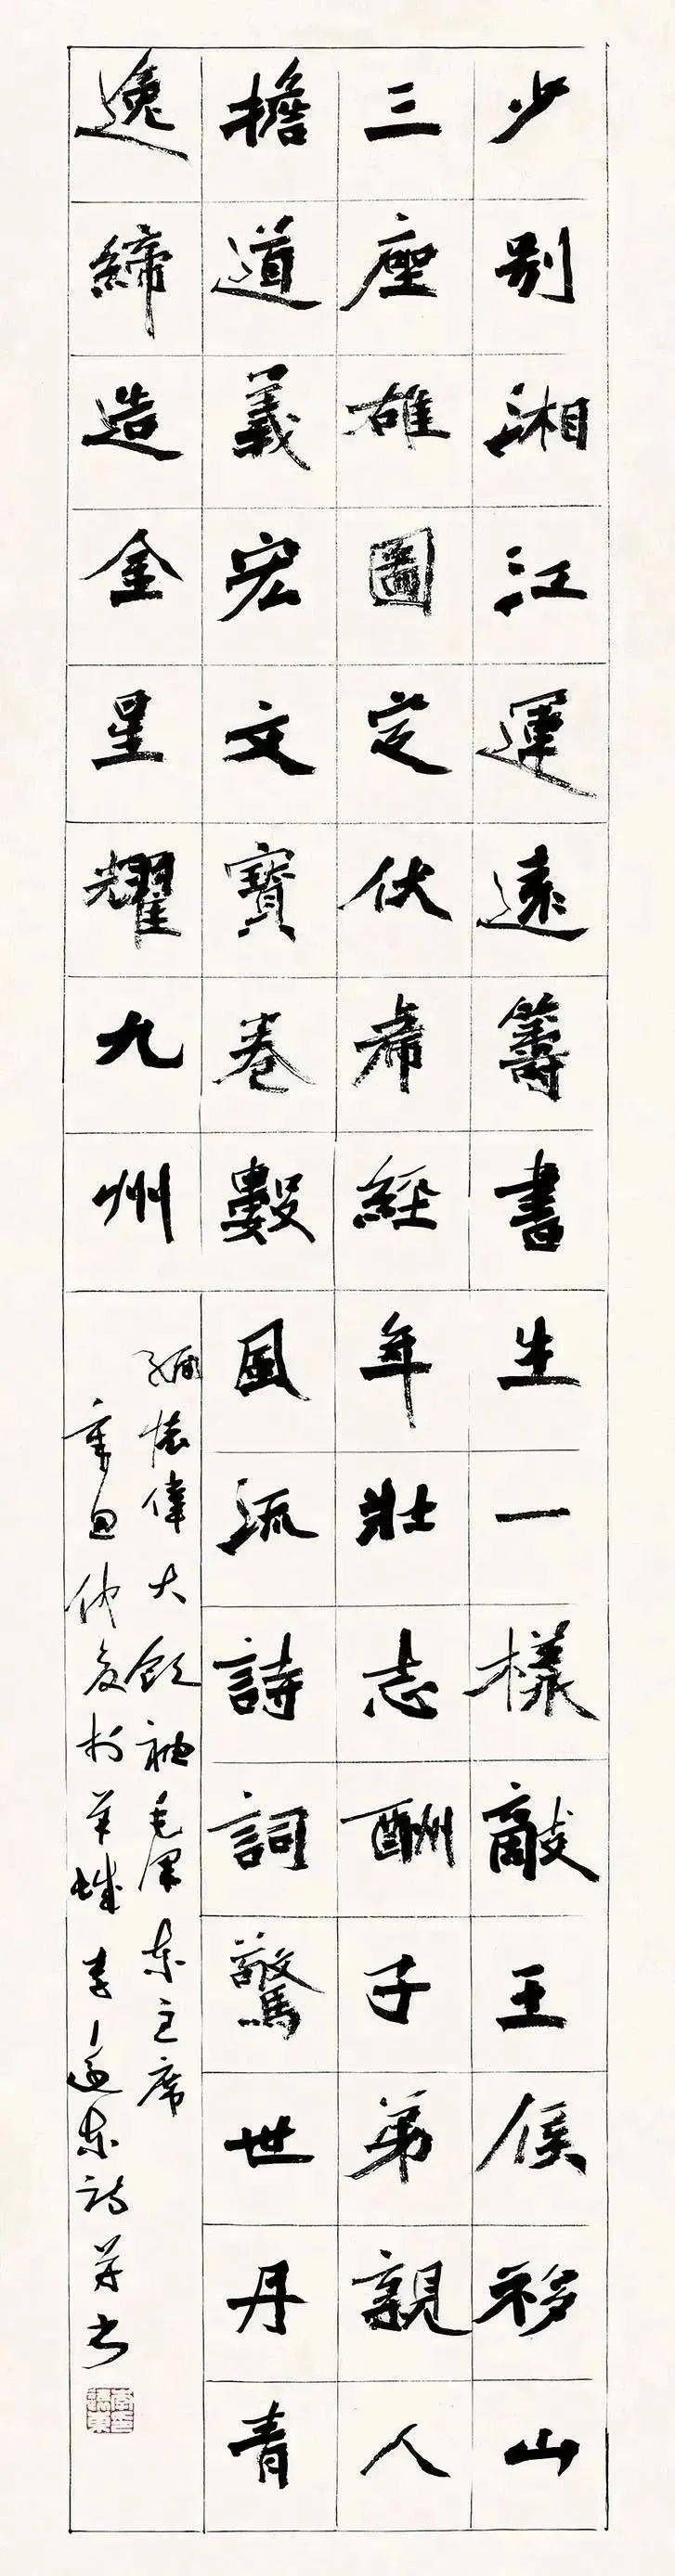 少别湘江運遠籌書生一樣敵王侯移山
三座雄圖定伏虎經年壯志酬子弟親人
擔道義宏文寶卷數風流詩詞驚世丹青
逸締造金星耀九州
緬懷偉大領袖毛澤東主席
重 於羊城李遠東詩并書